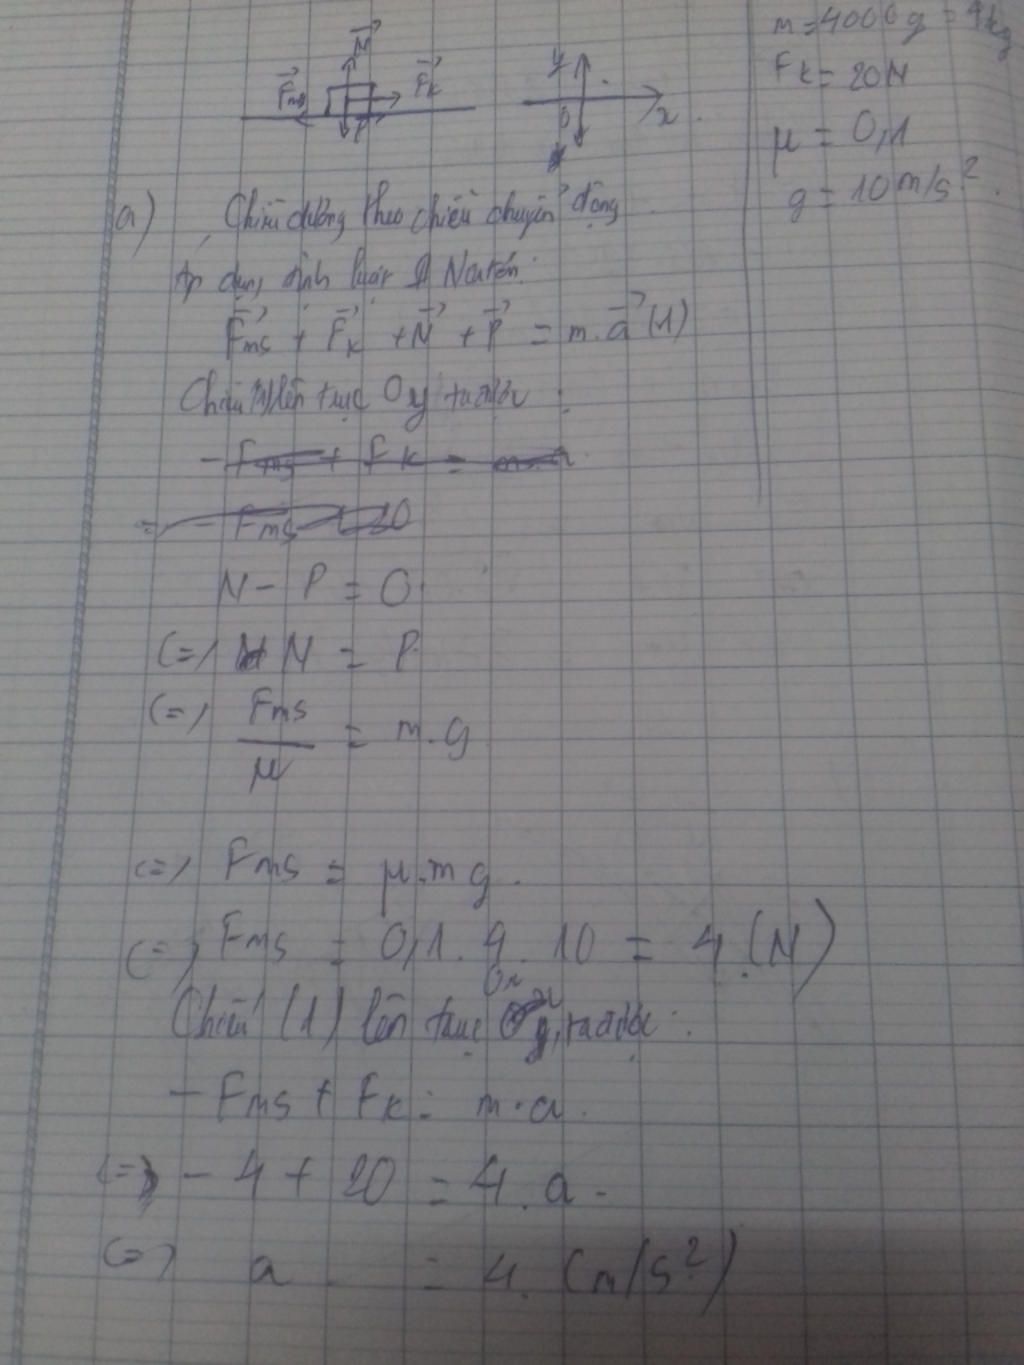 N
Fms
Fk
P
y
0
x
m = 4000g = 4kg
Fk = 20N
μ = 0,1
g = 10m/s².
a) Chiều dương theo chiều chuyển động
Áp dụng định luật II Newton:
Fms + Fk + N + P = m.a (1)
Chiếu (1) lên trục Oy ta được:
- Fms + Fk = m.a
- Fms 20
N - P = 0
(=) N = P
(=) Fms/μ = m.g
(=) Fms = μ.mg.
(=) Fms = 0,1.4.10 = 4.(N)
Chiếu (1) lên trục Ox, ta được:
- Fms + Fk = m.a.
(=) - 4 + 20 = 4.a
(=) a = 4.(m/s²)